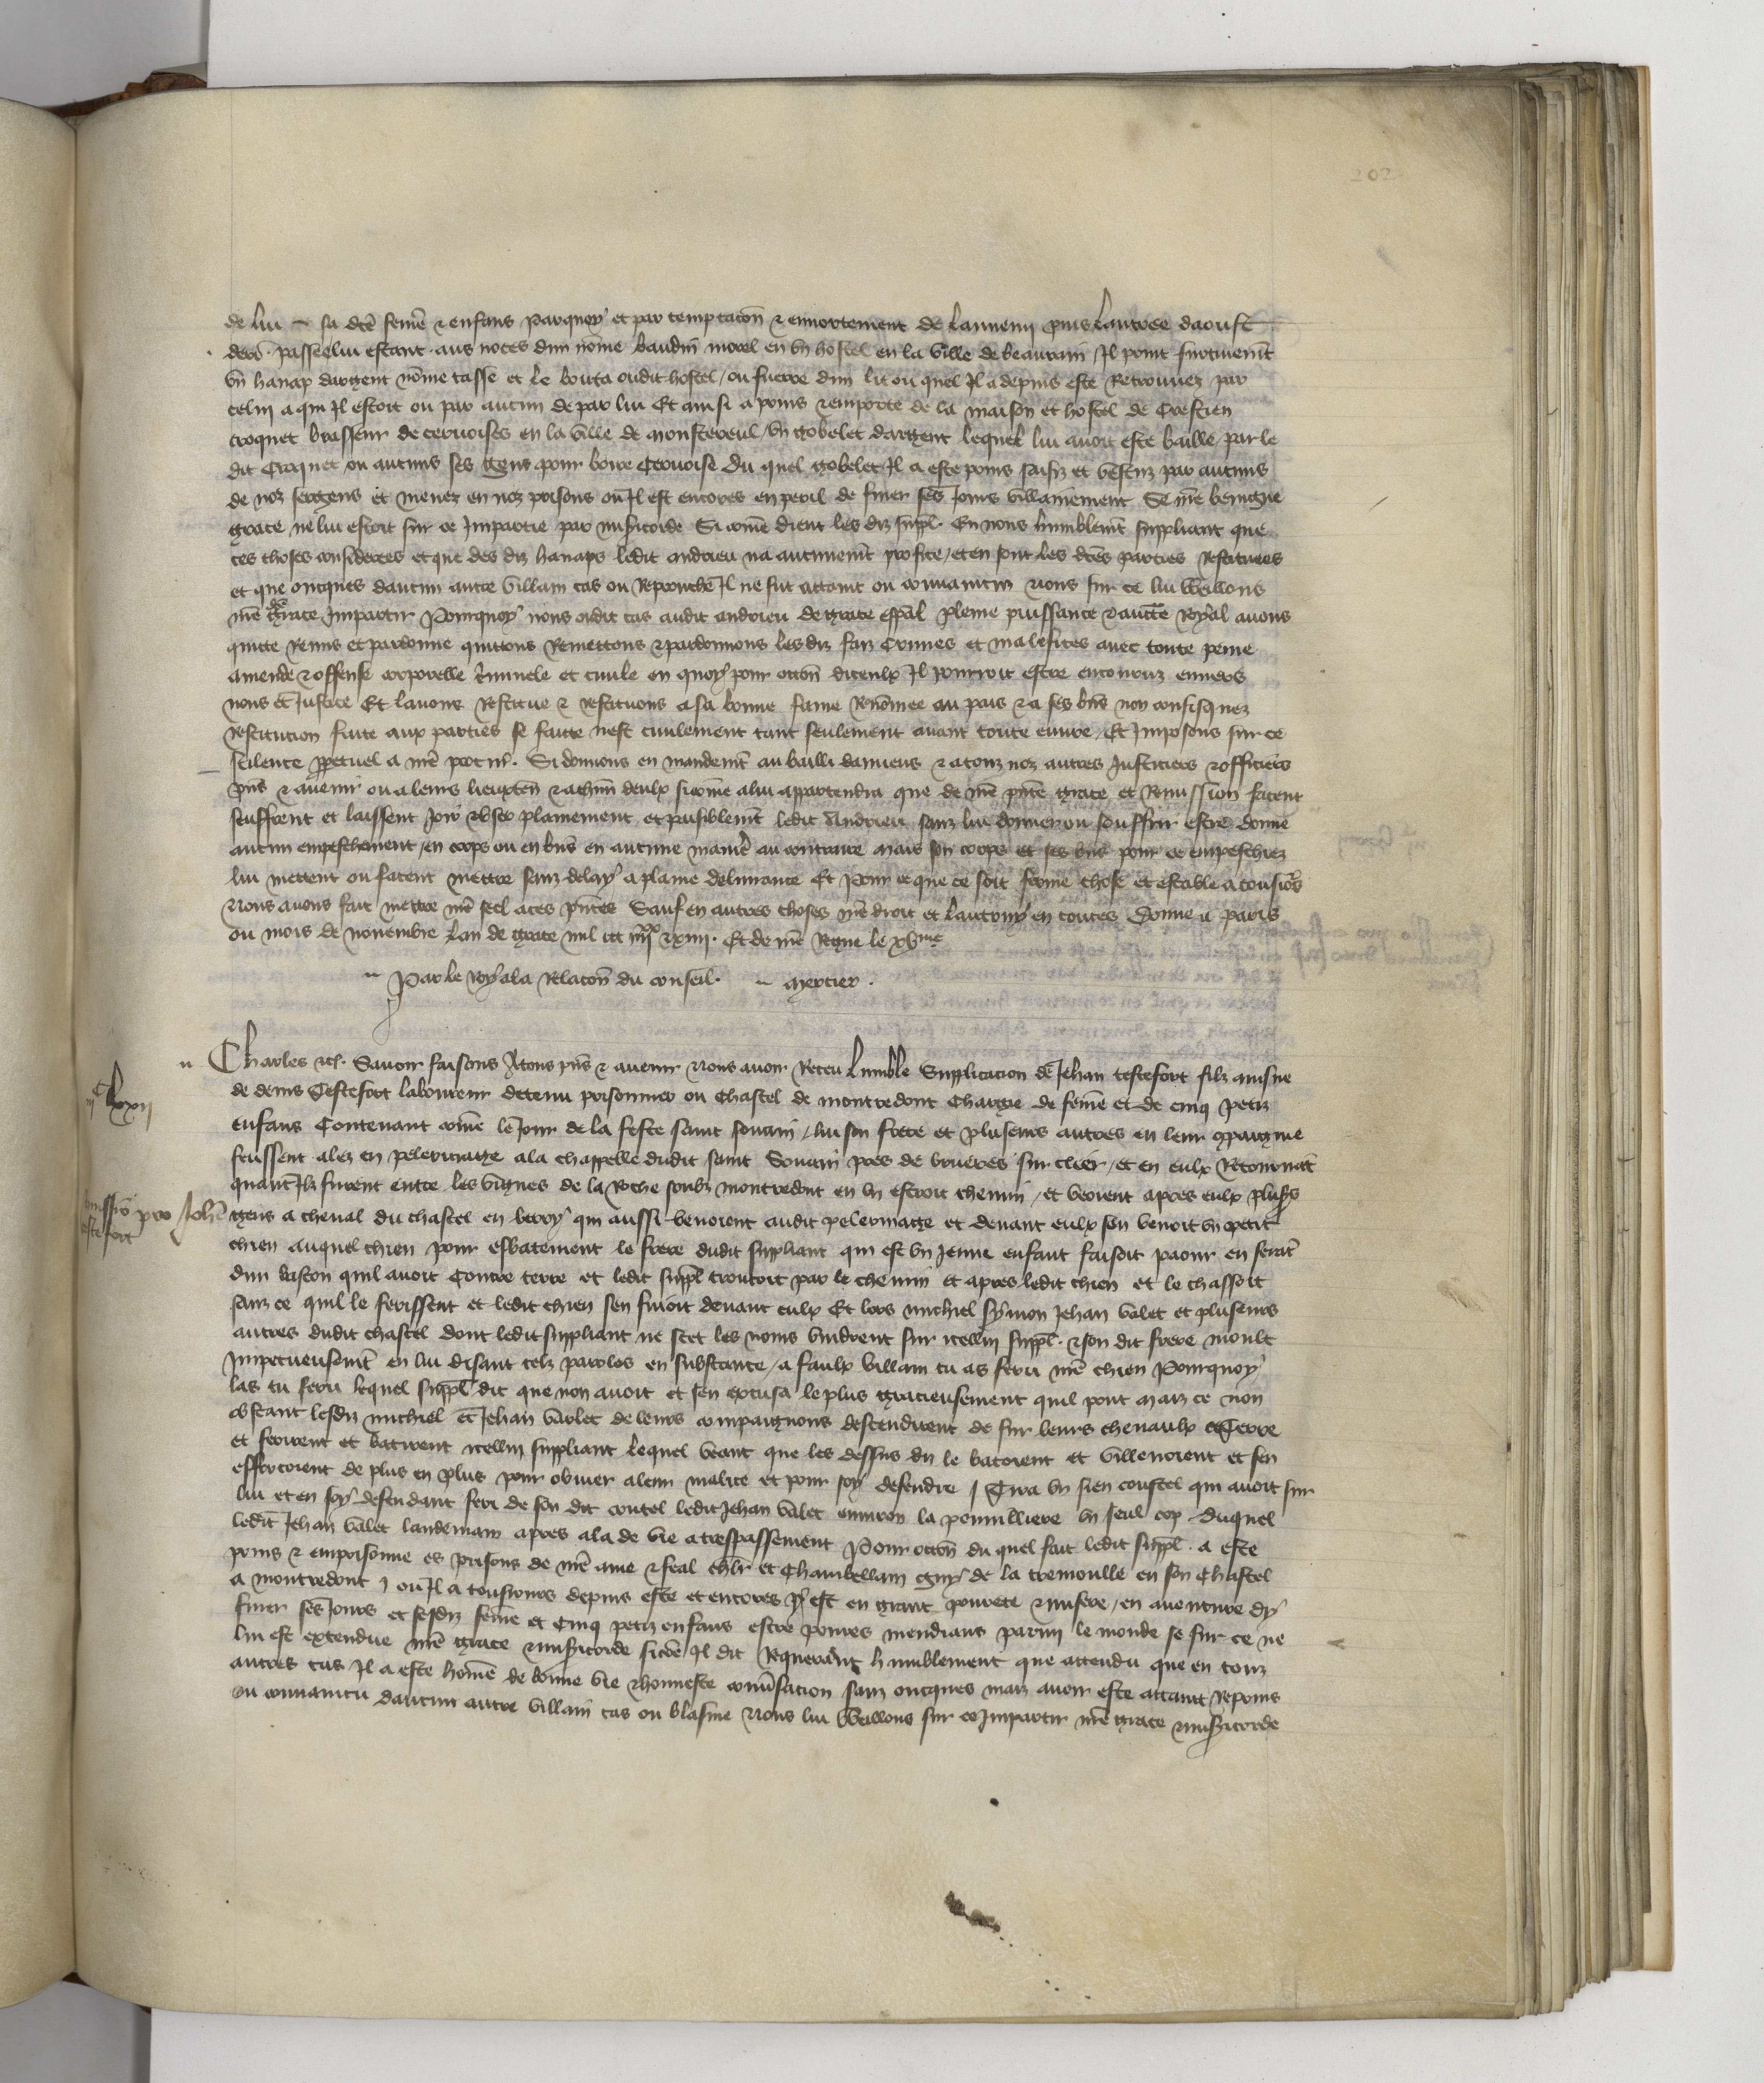 202
de lui – sa dcē feme & enfans parquoy et par temptacōn & ennortement de lannemi puis lautree daoust
derr. passee lui estant aus noces dun nōme baudin morel en vn hostel en la ville de beaurain / Il print furtivemt
vn hanap dargent nōme tasse et le bouta oudit hostel / ou fuerre dun lit ou quel Il a depuis este Retrouvez par
celui a qui Il estoit ou par aucun de par lui Et aussi a prins & emporte de la maison et hostel de Crestien
croquet brasseur de cervoises en la ville de monstereul / vn gobelet dargent lequel lui avoit este baille par le
dit Croquet ou aucuns ses gens pour boire Cervoise Du quel gobelet Il a este prins saisiz et vestuz par aucuns
de noz sergens et menez en noz prisons ou Il est encores en peril de finer ses Jours villainement Se nre benigne
grace ne lui estoit sur ce Impartie par misicorde Si come dient les diz suppl. En nous humblemt suppliant que
ces choses considerees et que des diz hanaps ledit andrieu na aucunemt profite / et en sont les dces parties Restituees
et que oncques daucun autre villain cas ou Reprouche Il ne fut attaint ou convaincuz nous sur ce lui Weillons
nre dce grace Impartir Pourquoy nous oudit cas audit andrieu de grace espāl pleine puissance & aucte Royal avons
quitte Remis et pardonne quittons Remettons & pardonnons lesdiz faiz Crimes et malefices avec toute peine
amende & offense corporelle Criminele et civile en quoy pour occōn diceulx Il pourroit estre encouruz envers
nous et Justice Et lavons Restitue & restituons a sa bonne fame Renōmee au pais & a ses biēs non confisquez
Restitution faite aux parties se faitte nest civilement tant seulement avant toute euvre / Et Imposons sur ce
scilence ppetuel a nre procur. Si donnons en mandemt au bailli damiens & a touz noz autres Justiciers & officiers
pns & avenir ou a leurs lieuxten & a chun deulx sicome a lui appartendra que de nre pnte grace et Remission facent
seuffrent et laissent Joir & user plainement et paisiblemt ledit Andrieu sanz lui donner ou souffrir estre donne
aucun empeschement / en corps ou en biēs en aucune maniē au contraire mais son corps et ses biēs pour ce empeschiez
lui mettent ou facent mettre sanz delay a plaine delivrance Et Pour ce que ce soit ferme chose et estable a tousiours
Nous avons fait mettre nre seel a ces pntes Sauf en autres choses nre droit et lautruy en toutes Donne a paris
ou mois de novembre lan de grace mil ccc iiijxx & xiiij. Et de nre Regne le xvme
Par le Roy a la Relacōn du conseil. Mercier.
Clxxij
Charles &c. Savoir faisons Atous pns & avenir Nous avoir Receu lumble Supplicacion de Jehan testefort filz aisne
de denis Testefort laboureur detenu prisonnier ou Chastel de montredont Chargie de feme et de cinq petiz
enfans Contenant come le Jour de la feste saint souain / lui son frere et pluseurs autres en leur cpaignie
feussent alez en pelerinage a la chappelle dudit saint Souain pres de brueres sur cher / et en eulx Retournāt
quant Ilz furent entre les vignes de la Roche soubz montredont en vn estroit chemin / et veoient apres eulx plusrs
Remissio pro Johe
testefort
gens a cheval du chastel en berry qui aussi venoient audit pelerinage et devant eulx sen venoit vn petit
chien auquel chien pour esbatement le frere dudit suppliant qui est vn Jeune enfant faisoit paour en ferāt
dun baston quil avoit Contre terre et ledit suppl trouvoit par le chemin et apres ledit chien et le chassoit
sanz ce quil le ferissent et ledit chien sen fuioit devant eulx Et lors michiel symon Jehan valet et pluseurs
autres dudit chastel dont ledit suppliant ne scet les noms vindrent sur icellui suppl. & son dit frere moult
Impetueusemt en lui disant telz paroles en substance / a faulx villain tu as feru nre chien Pourquoy
las tu feru lequel suppl dit que non avoit et sen excusa le plus gracieusement quil pout maiz ce non
obstant lesdiz michiel et Jehan varlet de leurs compaignons descendirent de sur leurs chevaulx a Terre
et ferirent et batirent icellui suppliant lequel veant que les dessus diz le batoient et villenoient et sen
efforcoient de plus en plus pour obvier a leur malice et pour soy defendre / Tira vn sien coustel qui avoit sur
lui et en soy defendant feri de son dit coutel ledit Jehan valet environ la penilliere vn seul cop Duquel
ledit Jehan valet lendemain apres ala de vie a trespassement Pour occōn du quel fait ledit suppl. a este
prins & emprisonne es prisons de nre ame & feal chlr et Chambellam guy de la tremoulle en son Chastel
a montredont / ou Il a tousiours depuis este et encores y est en grant povrete & misere / en aventure dy
finer ses Jours et sesdiz feme et Cinq petiz enfans estre povres mendians parmy le monde se sur ce ne
lui est extendue nre grace & misicorde sicōe Il dit Requerant humblement que attendu que en touz
autres cas Il a este homē de bonne vie & honneste convsacion sanz oncques maiz avoir este attaint Reprins
ou convaincu daucun autre villain cas ou blasme Nous lui Weillons sur ce Impartir nre grace & misicorde